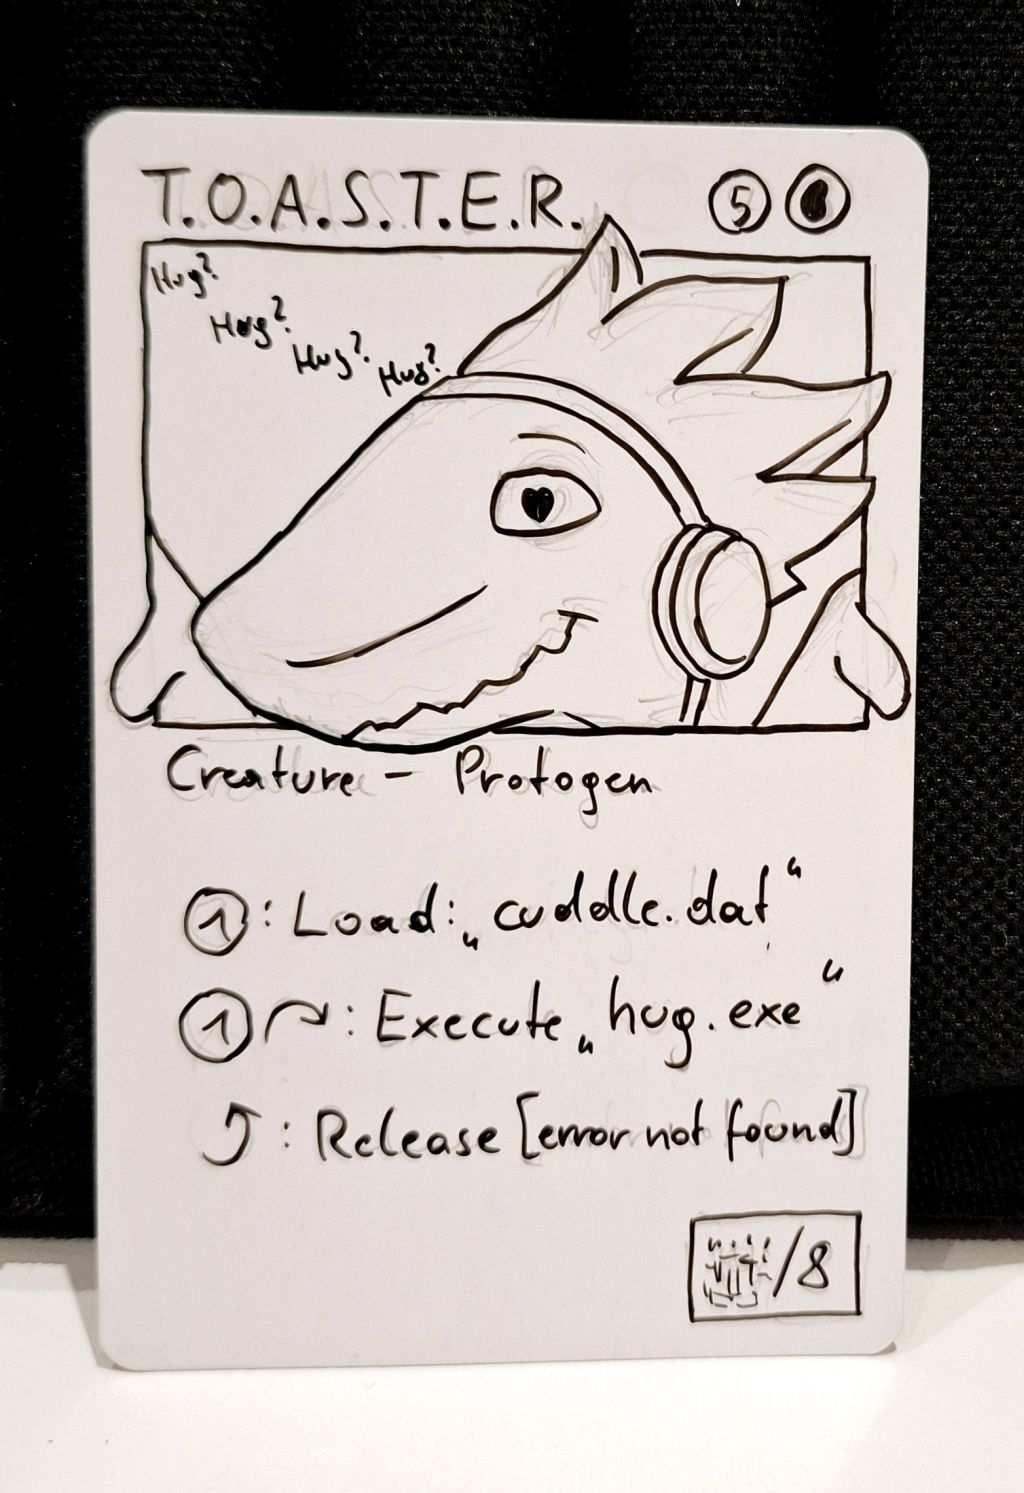 T.O.A.S.T.E.R. 5
Hug?
Hug?
Hug?
Hug?
Creature – Protogen
1: Load: „cuddle.dat“
1: Execute „hug.exe“
: Release [error not found]
/8